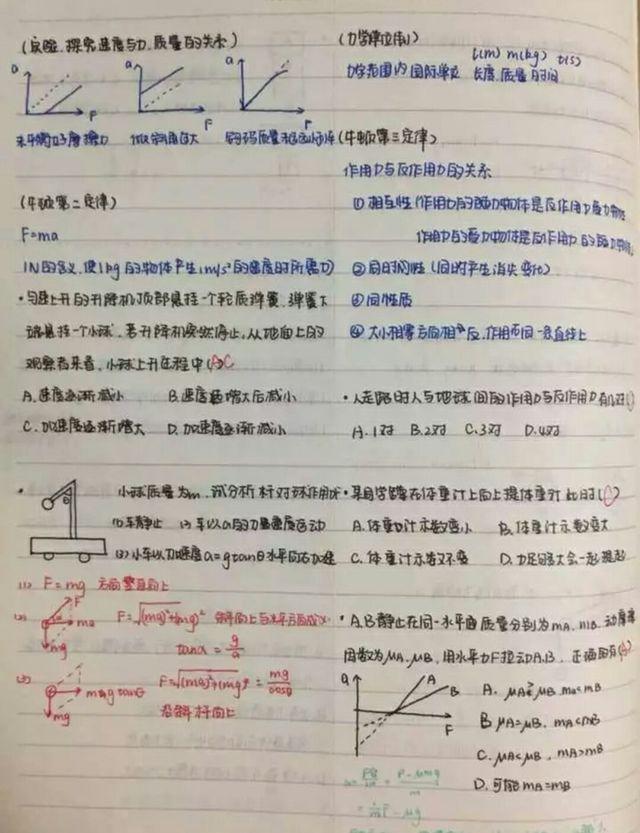 (实验：探究速度与力、质量的关系)
a a a
F F
未平衡好摩擦力
(牛顿第二定律)
F=ma
1N的含义：使1kg的物体产生1m/s²的速度时所需力
·匀速上升的升降机顶部悬挂一个轻质弹簧，弹簧下
端悬挂一个小球，若升降机突然停止，从地面上的
观察者来看，小球上升过程中(A)C
A.速度逐渐减小 B.速度 增大后减小
C.加速度逐渐增大 D.加速度逐渐减小
· 小球质量为m，试分析杆对球作用力
θ
(1)车静止 (2)车以a的 速度运动
(3)小车以加速度a=gtanθ水平向右加速
(1) F=mg 方向竖直向上
(2) F ma mg F=√(ma)²+(mg)² 斜向上与水平方向成α
tanα=g/a
(3) mgtanθ mg F=√(ma)²+(mg)²=mg/cosθ
沿斜杆向上
(力学单位制)
l(m) m(kg) t(s)
力学范围内国际单位 长度、质量、时间
(牛顿第三定律)
作用力与反作用力的关系
①相互性(作用力的施力物体是反作用力受力物体
作用力的受力物体是反作用力的施力物体
②同时间性(同时产生消失变化)
③同性质
④大小相等方向相反，作用在同一条直线上
·人走路时人与地球间的作用力与反作用力有几对()
A.1对 B.2对 C.3对 D.4对
·某同学蹲在体重计上向上提体重计 此时()
A.体重计示数变小 B.体重计示数变大
C.体重计示数不变 D.力足够大会一起提起
·A.B静止在同一水平面 质量分别为mA. mB. 动摩擦
因数为μA.μB，用水平力F拉动A.B，正确的有(A)
a A B F
A. μA=μB mA<mB
B μA=μB. mA<mB
C. μA<μB. mA>mB
D.可能mA=mB
a= = F-μmg/m
=1/m F-μg